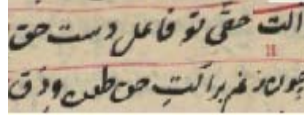 آلت حقی تو فاعل دست حق
چون زنم بر آلت حق طعن و دق